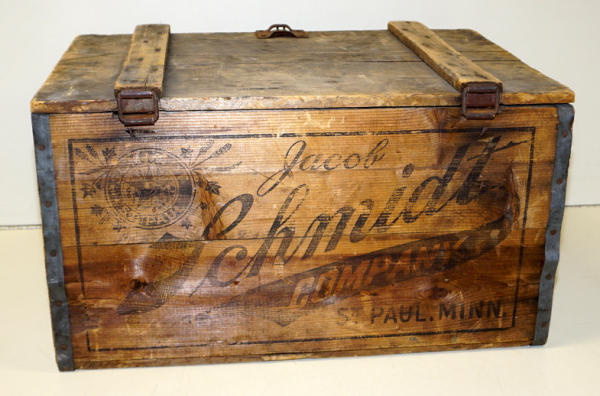 Jacob
Schmidt
COMPANY
ST. PAUL. MINN.